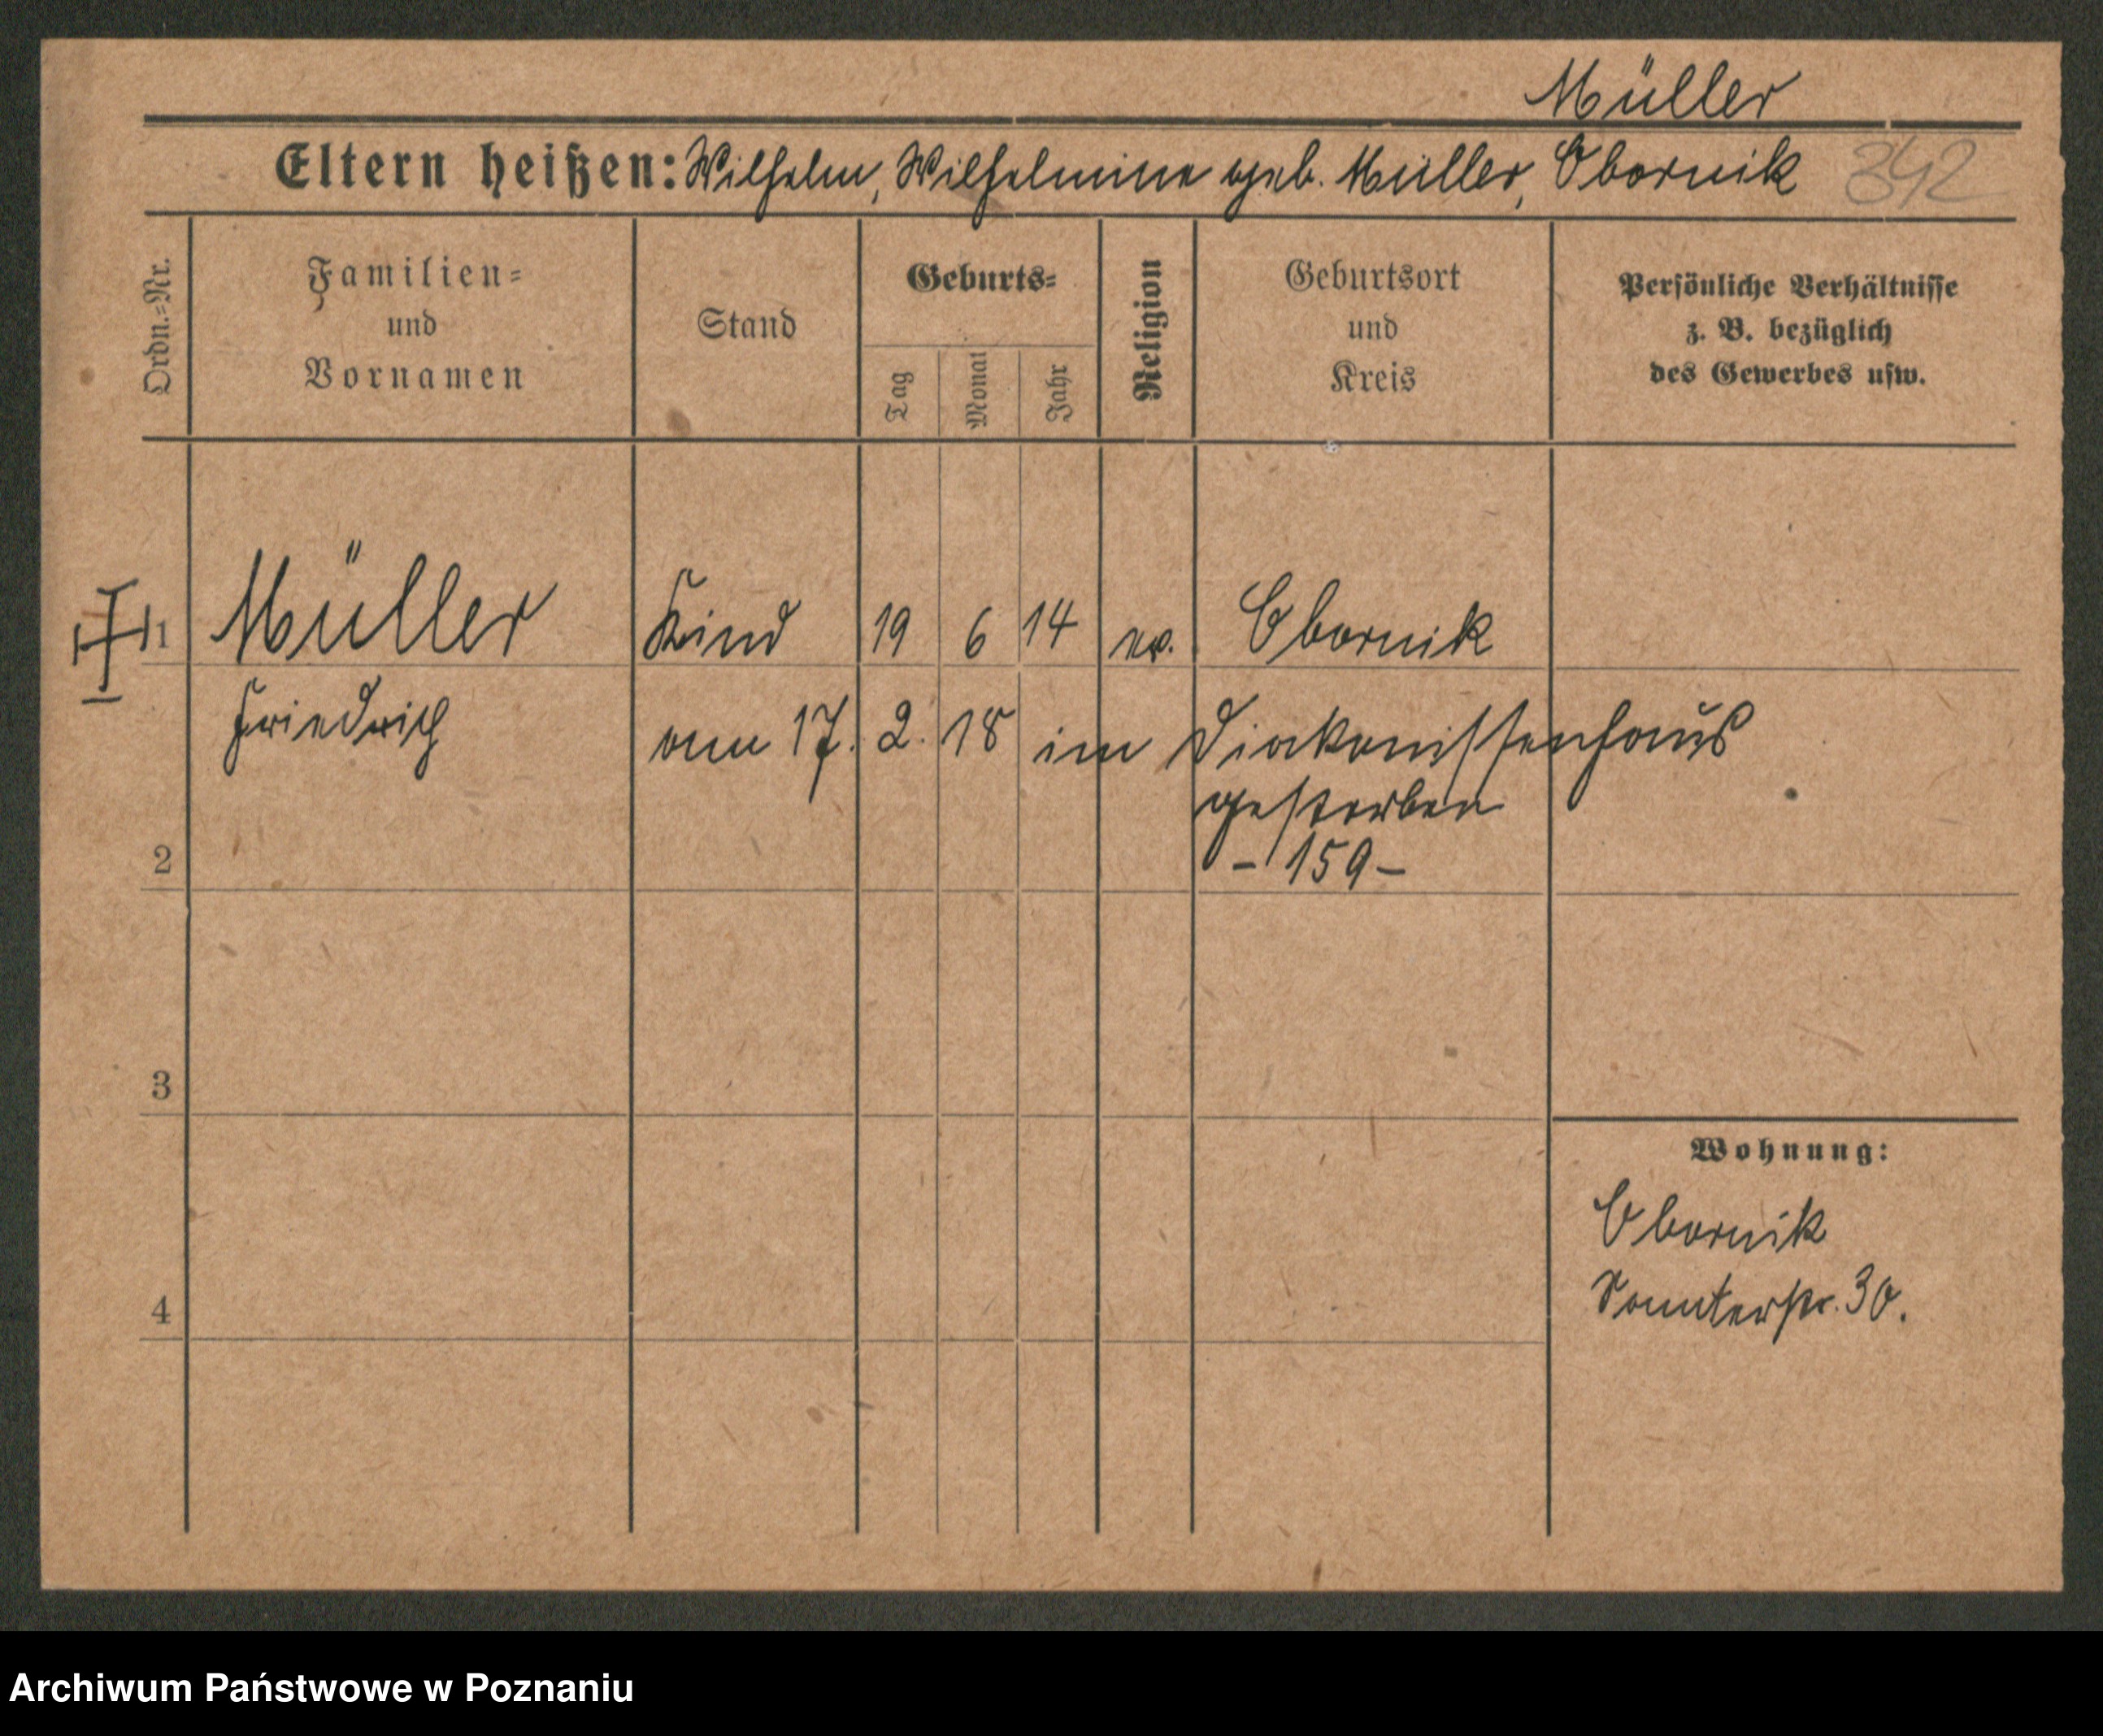 Müller
Eltern heißen: Wilhelm, Wilhelmine geb. Müller, Obornik 342
Ordn.=Nr.
Familien=
und
Vornamen
Stand
Geburts=
Tag
Monat
Jahr
Religion
Geburtsort
und
Kreis
Persönliche Verhältnisse
z. B. bezüglich
des Gewerbes usw.
1 Müller Kind 19 6 14 ev. Obornik
Friedrich am 17. 2. 18 im Diakonissenhaus
gestorben
2 - 159 -
3
Wohnung:
Obornik
4 Samterstr. 30.
Archiwum Państwowe w Poznaniu